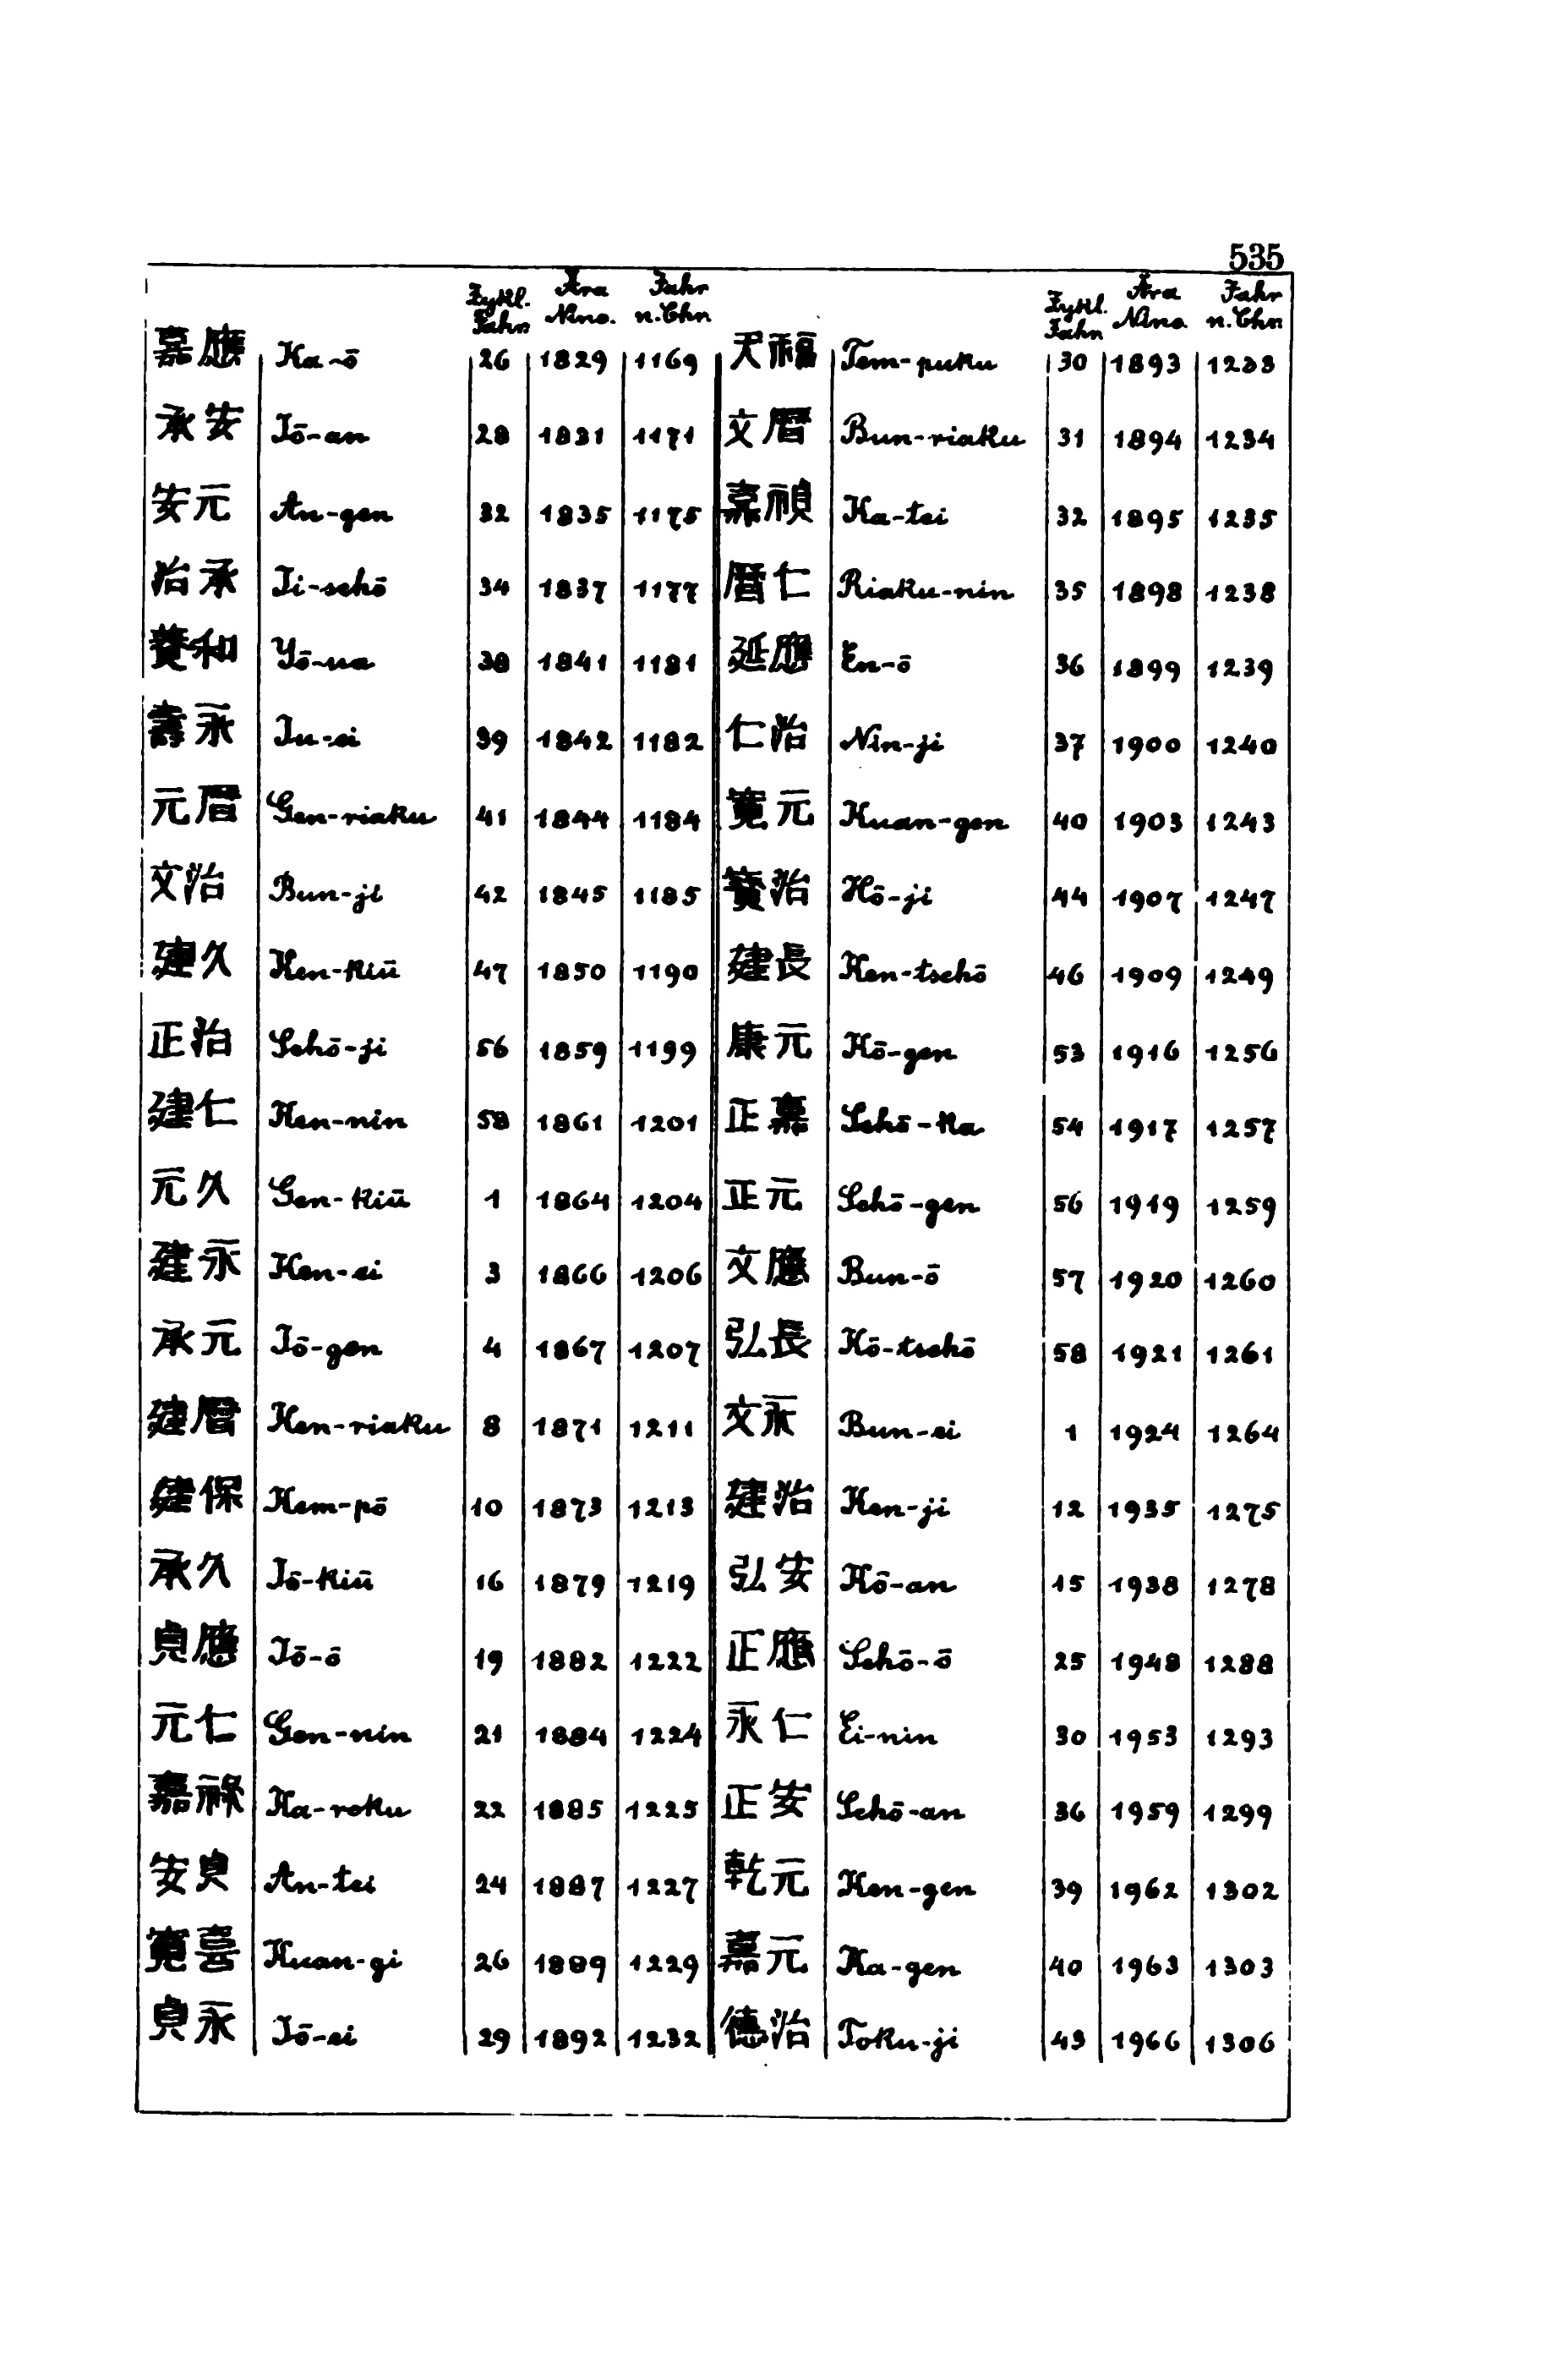 535
Zykl. Jahr Ära Nino. Jahr n. Chr.
嘉應 Ka-ō 26 1829 1169
承安 Jō-an 28 1831 1171
安元 An-gen 32 1835 1175
治承 Ji-schō 34 1837 1177
養和 Yō-ua 38 1841 1181
壽永 Ju-ei 39 1842 1182
元暦 Gen-riaku 41 1844 1184
文治 Bun-ji 42 1845 1185
建久 Ken-kiū 47 1850 1190
正治 Schō-ji 56 1859 1199
建仁 Ken-nin 58 1861 1201
元久 Gen-kiū 1 1864 1204
建永 Ken-ei 3 1866 1206
承元 Jō-gen 4 1867 1207
建暦 Ken-riaku 8 1871 1211
建保 Kem-pō 10 1873 1213
承久 Jō-kiū 16 1879 1219
貞應 Jō-ō 19 1882 1222
元仁 Gen-nin 21 1884 1224
嘉祿 Ka-roku 22 1885 1225
安貞 An-tei 24 1887 1227
寛喜 Kuan-gi 26 1889 1229
貞永 Jō-ei 29 1892 1232
Zykl. Jahr Ära Nino. Jahr n. Chr
天福 Tem-puku 30 1893 1233
文暦 Bun-riaku 31 1894 1234
嘉禎 Ka-tei 32 1895 1235
暦仁 Riaku-nin 35 1898 1238
延應 En-ō 36 1899 1239
仁治 Nin-ji 37 1900 1240
寛元 Kuan-gen 40 1903 1243
寳治 Hō-ji 44 1907 1247
建長 Ken-tschō 46 1909 1249
康元 Kō-gen 53 1916 1256
正嘉 Schō-ka 54 1917 1257
正元 Schō-gen 56 1919 1259
文應 Bun-ō 57 1920 1260
弘長 Kō-tschō 58 1921 1261
文永 Bun-ei 1 1924 1264
建治 Ken-ji 12 1935 1275
弘安 Kō-an 15 1938 1278
正應 Schō-ō 25 1948 1288
永仁 Ei-nin 30 1953 1293
正安 Schō-an 36 1959 1299
乾元 Ken-gen 39 1962 1302
嘉元 Ka-gen 40 1963 1303
德治 Toku-ji 43 1966 1306